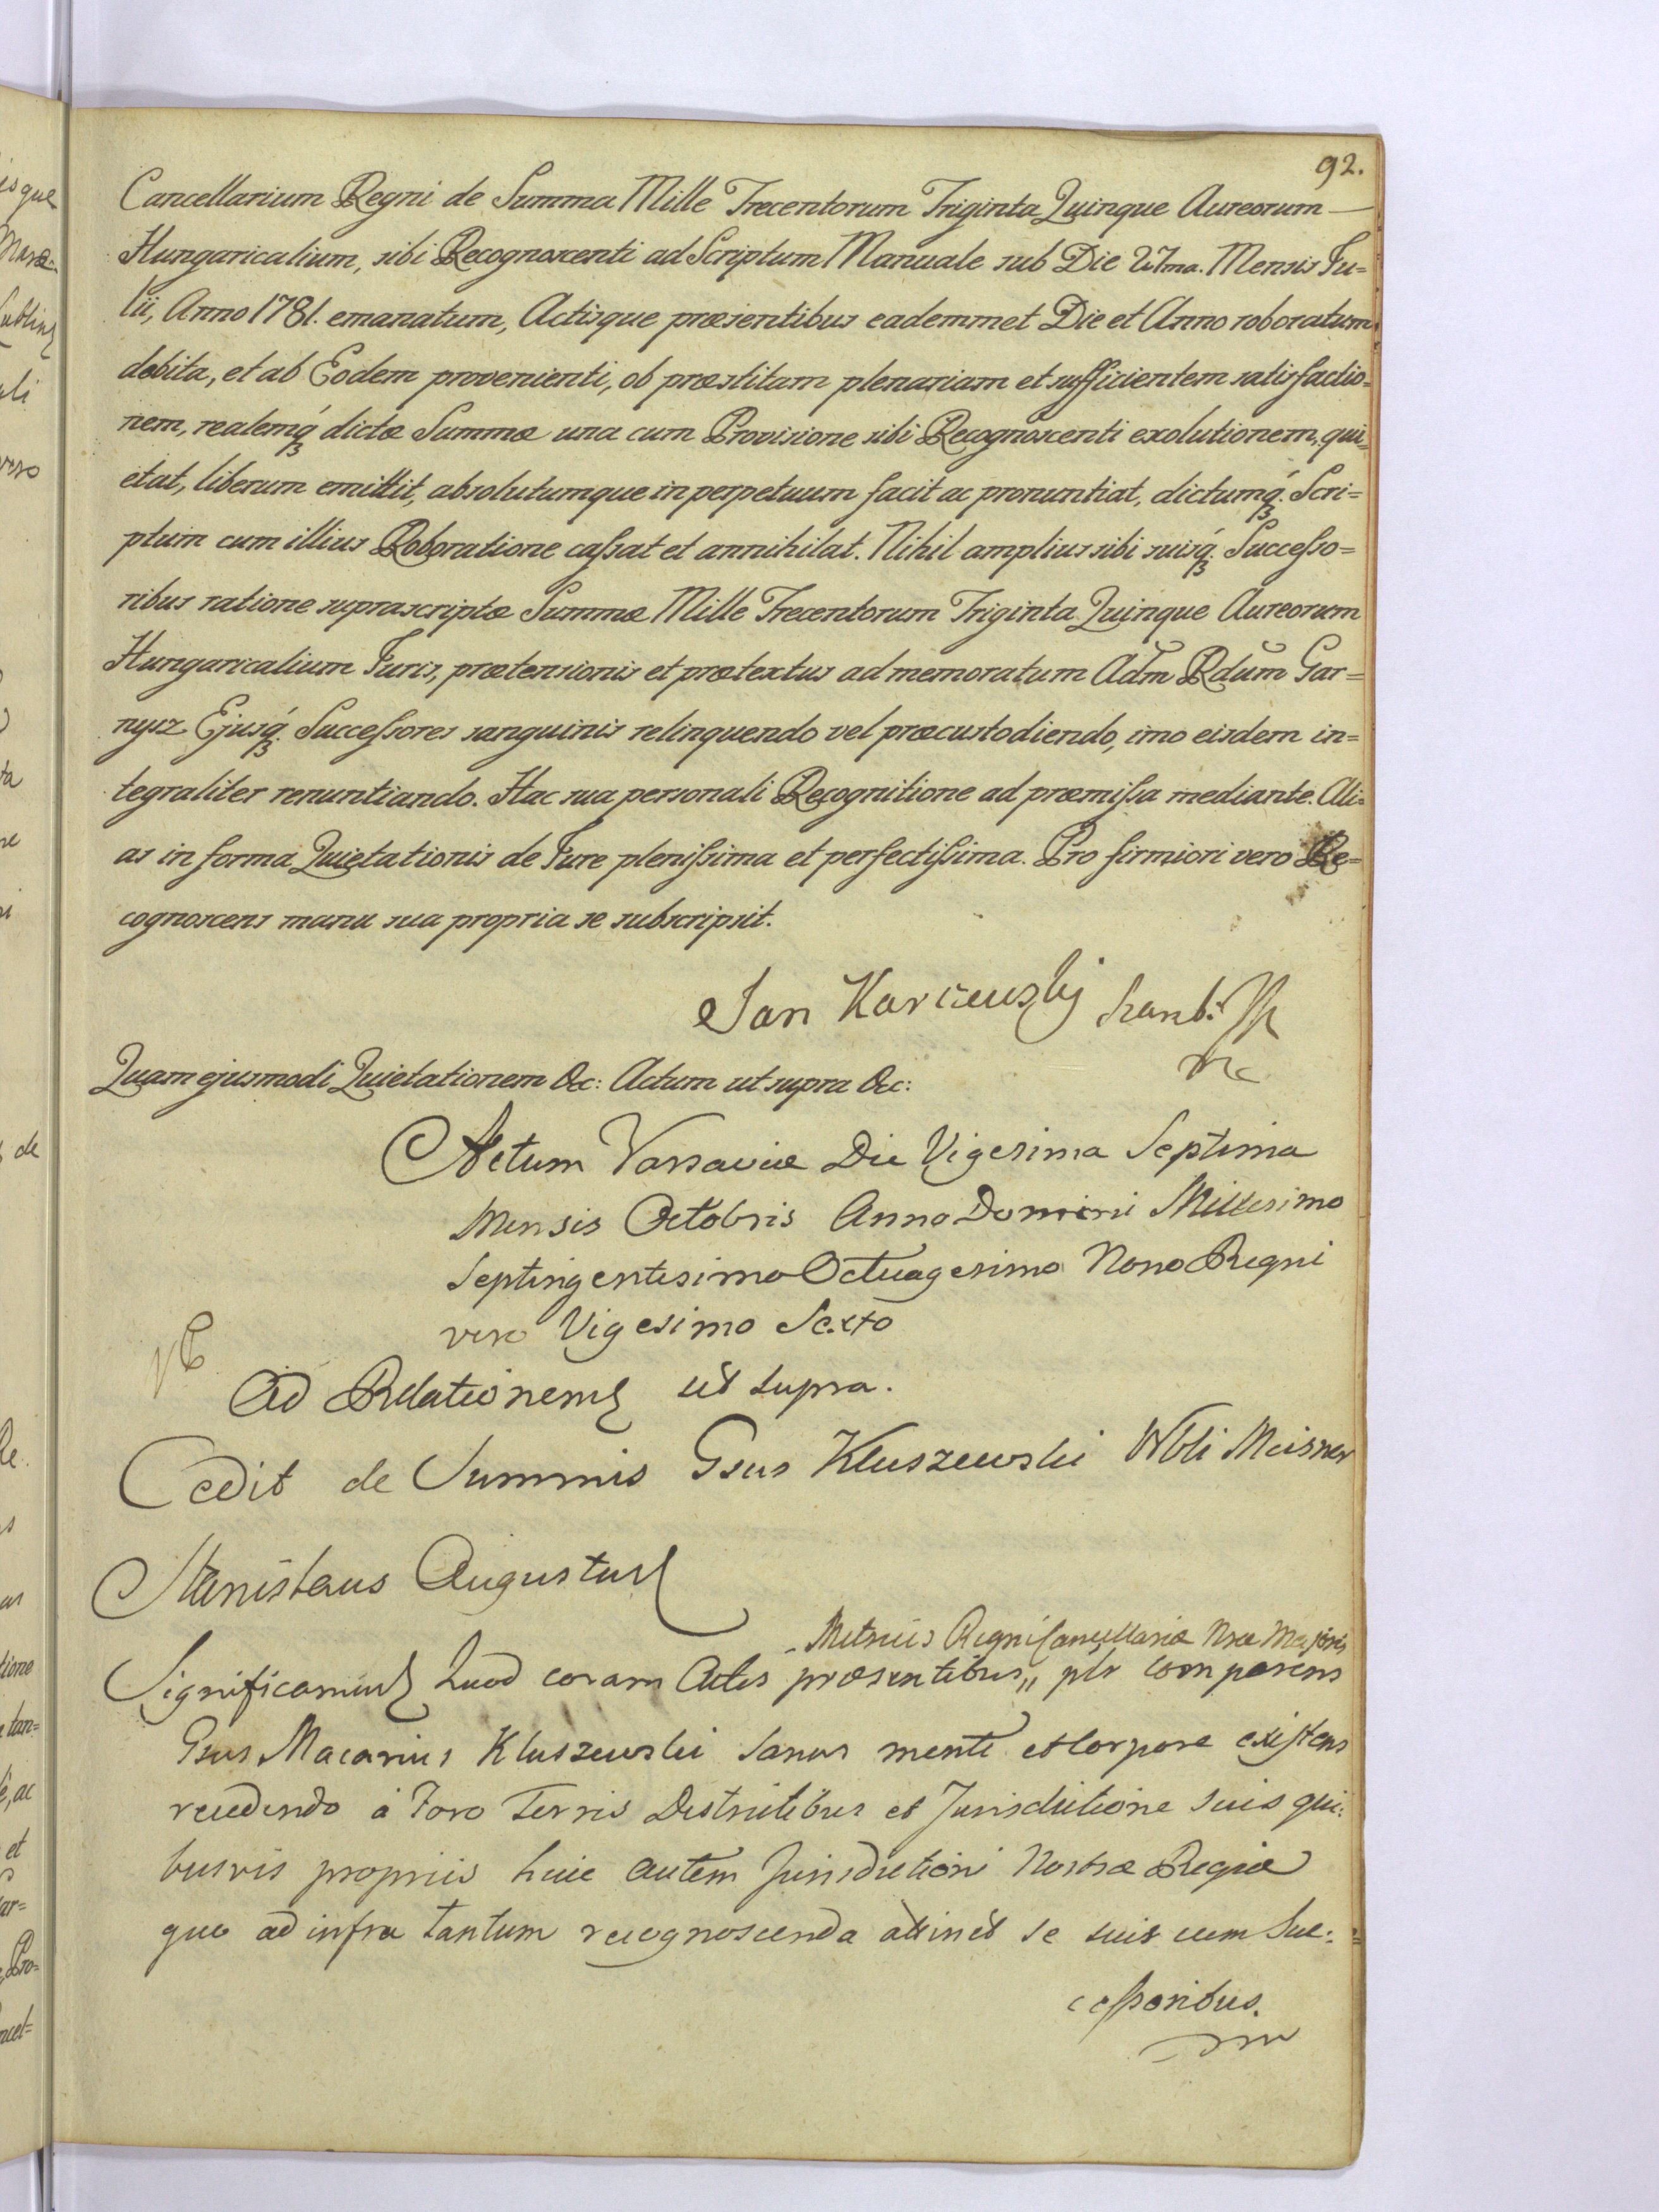 92.
Cancellarium Regni de Summa Mille Trecentorum Triginta Quinque Aureorum —
Hungaricalium, sibi Recognoscenti ad Scriptum Manuale sub Die 27ma. Mensis Ju=
lii, Anno 1781. emanatum, Actisque præsentibus eademmet Die et Anno roboratum
debita, et ab Eodem provenienti, ob præstitam plenariam et sufficientem satisfactio=
nem, realemq́ꝫ dictæ Summæ una cum Provisione sibi Recognoscenti exolutionem, qui=
etat, liberum emittit, absolutumque in perpetuum facit ac pronuntiat, dictumq́ꝫ. Scri=
ptum cum illius Roboratione caſsat et annihilat. Nihil amplius sibi suisq́ꝫ. Succeſso=
ribus ratione suprascriptæ Summæ Mille Trecentorum Triginta Quinque Aureorum
Hungaricalium Juris, prætensionis et prætextus ad memoratum Adm̃ Rdũm Gar=
nysz Ejusq́ꝫ. Succeſsores sanguinis relinquendo vel præcustodiendo, imo eisdem in=
tegraliter renuntiando. Hac sua personali Recognitione ad præmiſsa mediante. Ali=
as in forma Quietationis de Jure pleniſsima et perfectiſsima. Pro firmiori vero Re=
cognoscens manu sua propria se subscripsit.
Jan Karczewsky
Quam ejusmodi Quietationem &c: Actum ut supra &c:
Actum Varsaviæ Die Vigesima Septima
Mensis Octobris Anno Domini Millesimo
Septingentesimo Octuagesimo Nono Regni
vero Vigesimo Sexto
Ad Relationem ut supra.
Cedit de Summis Gsus Kluszewski Nbli Meisner
Stanislaus Augustus
Metrices Regni Cancellariæ Nræ Majoris
Significamus Quod coram Actis præsentibus,, plr comparens
Gsus Macarius Kluszewski Sanus mente et Corpore existens
recedendo à Foro Terris Districtibus et Jurisdictione suis qui:
busvis propriis huic autem Jurisdictioni Nostræ Regiæ
quo ad infra tantum recognoscenda attinet se suis cum Suc:=
ceſsoribus.